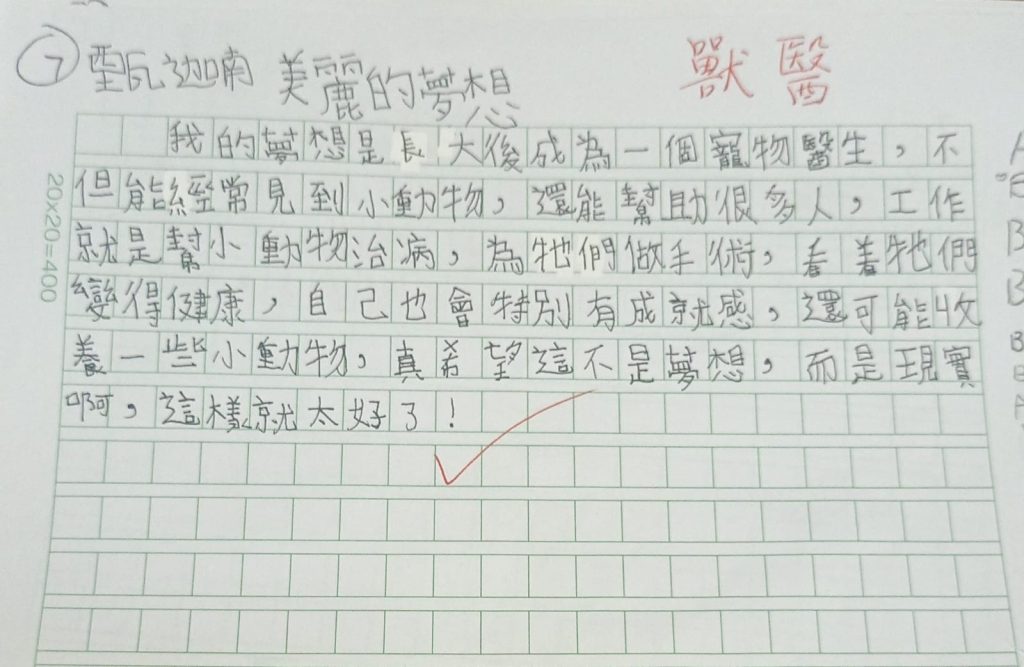 ⑦ 美麗的夢想 獸醫
我的夢想是長大後成為一個寵物醫生，不
但能經常見到小動物，還能幫助很多人，工作
就是幫小動物治病，為牠們做手術，看着牠們
變得健康，自己也會特別有成就感，還可能收
養一些小動物，真希望這不是夢想，而是現實
啊，這樣就太好了！
20×20=400